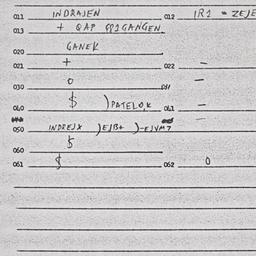 011 INDRAJEN 012 IR1 = ZEJE
013 + QAP QP1GANGEN
020 GANEK
021 + 022 –
030 0 031 –
040 $ )PATELO,K 041 –
050 INDREJX )EJB+ )-EJVM7
060 $
061 $ 062 0